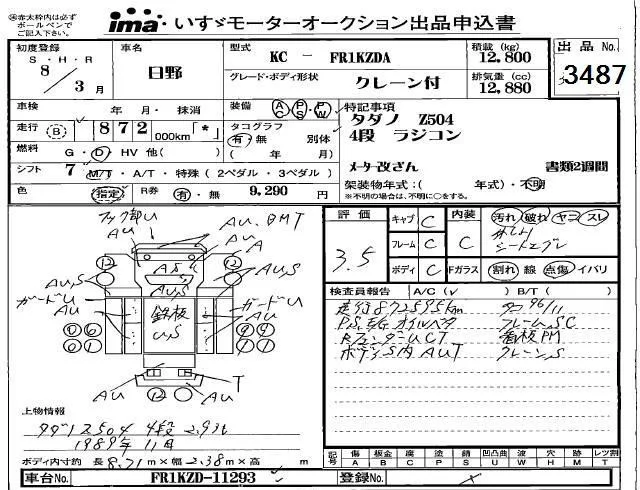 ※赤太枠内は必ず
ボールペンで
ご記入下さい。
ima いすゞモーターオークション出品申込書
初度登録
S・H・R
8/3月
車名
日野
型式
KC - FR1KZDA
グレード・ボディ形状
クレーン付
積載(kg)
12,800
排気量(cc)
12,880
出品 No.
3487
車検 年・月・抹消
走行 (B) 872 000km「*」
燃料 G・D・HV 他( )
シフト 7 M/T・A/T・特殊(2ペダル・3ペダル)
色 指定 R券 有・無 9,290 円
装備 AC PS PW
タコグラフ
有・無 別体
( 年/ 月)
特記事項
タダノ Z504
4段 ラジコン
メーター改ざん 書類2週間
架装物年式:( 年式)・不明
※不明の場合は、不明に○をする。
AU.BMT
AU
A
AU
AU,S
AU,S
ガードU
ガードU
AU
AU
鉄板
U,S
AU
AU
T
12
12
12
上物情報
タダノ Z504 4段 2.93t
1989年11月
ボディ内寸約 長 8.71m×幅 2.38m×高 m
評価
3.5
キャブ C
フレーム C
ボディ C
内装 C
Fガラス C
汚れ・破れ・ヤコ・スレ
割れ・線・点傷・イバリ
検査員報告 A/C(✓) B/T( )
走行872595km
P.S.E/G オイルハタ フレームSC
RフェンダーUCT 看板PM
ボディS内AUT クレーンS
記号
傷 A
板金 B
腐 C
塗 P
錆 S
凹凸曲 U
波 W
穴 H
跡 M
レツ割 T
車台No. FR1KZD-11293
登録No.